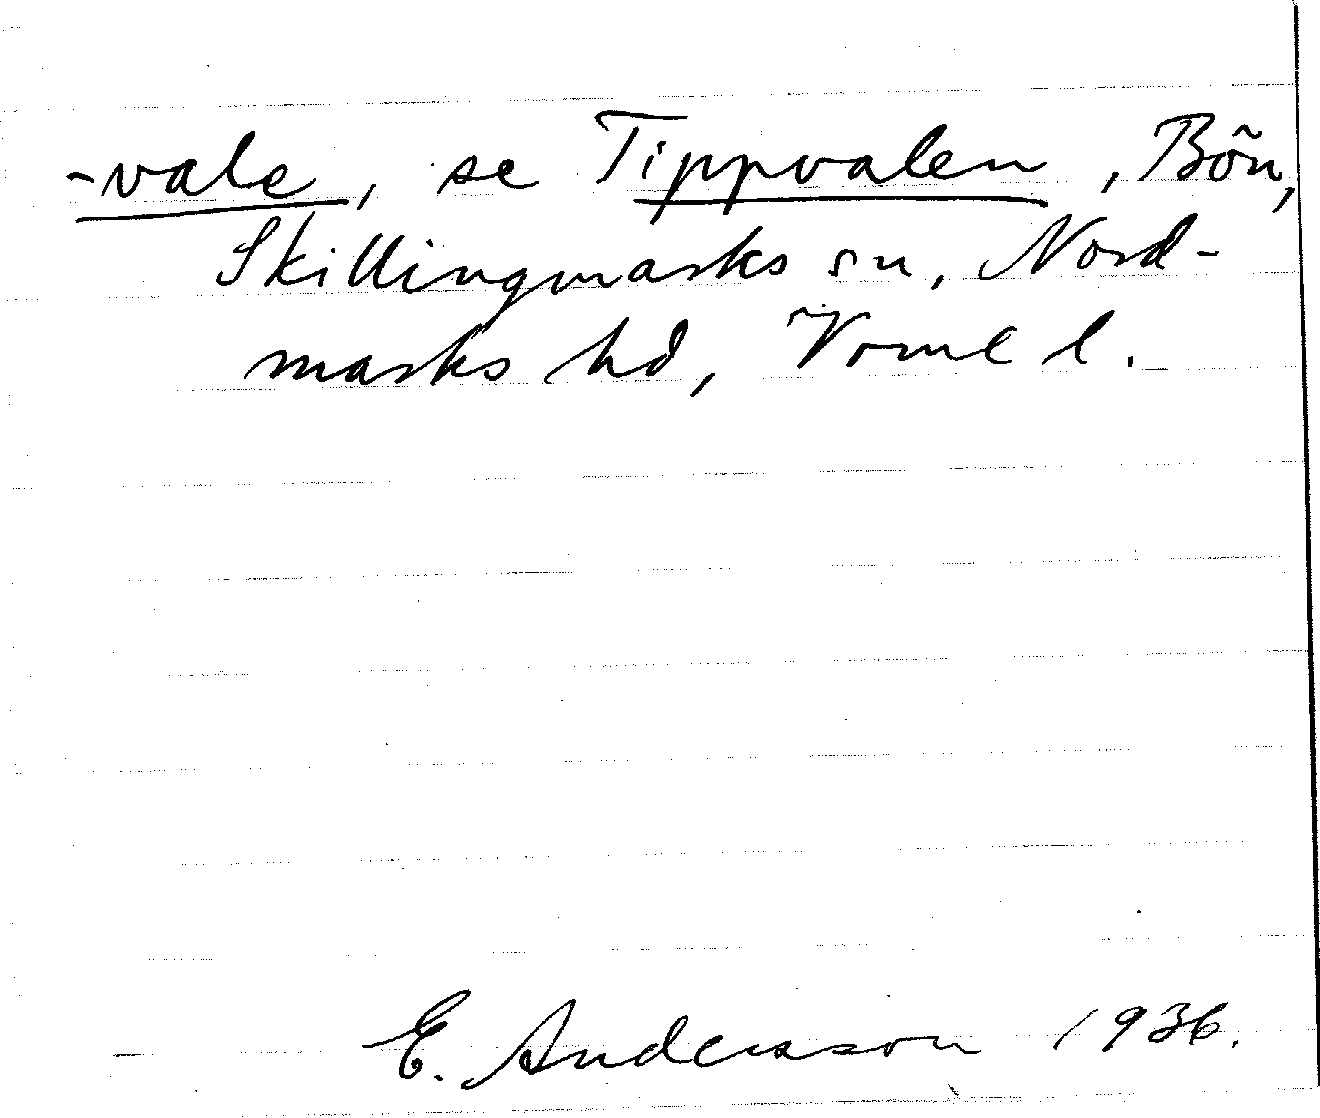 -vale, se Tippvalen, Bön,
Skillingmarks sn, Nord-
marks hd, Verml l.
E. Andersson 1936.